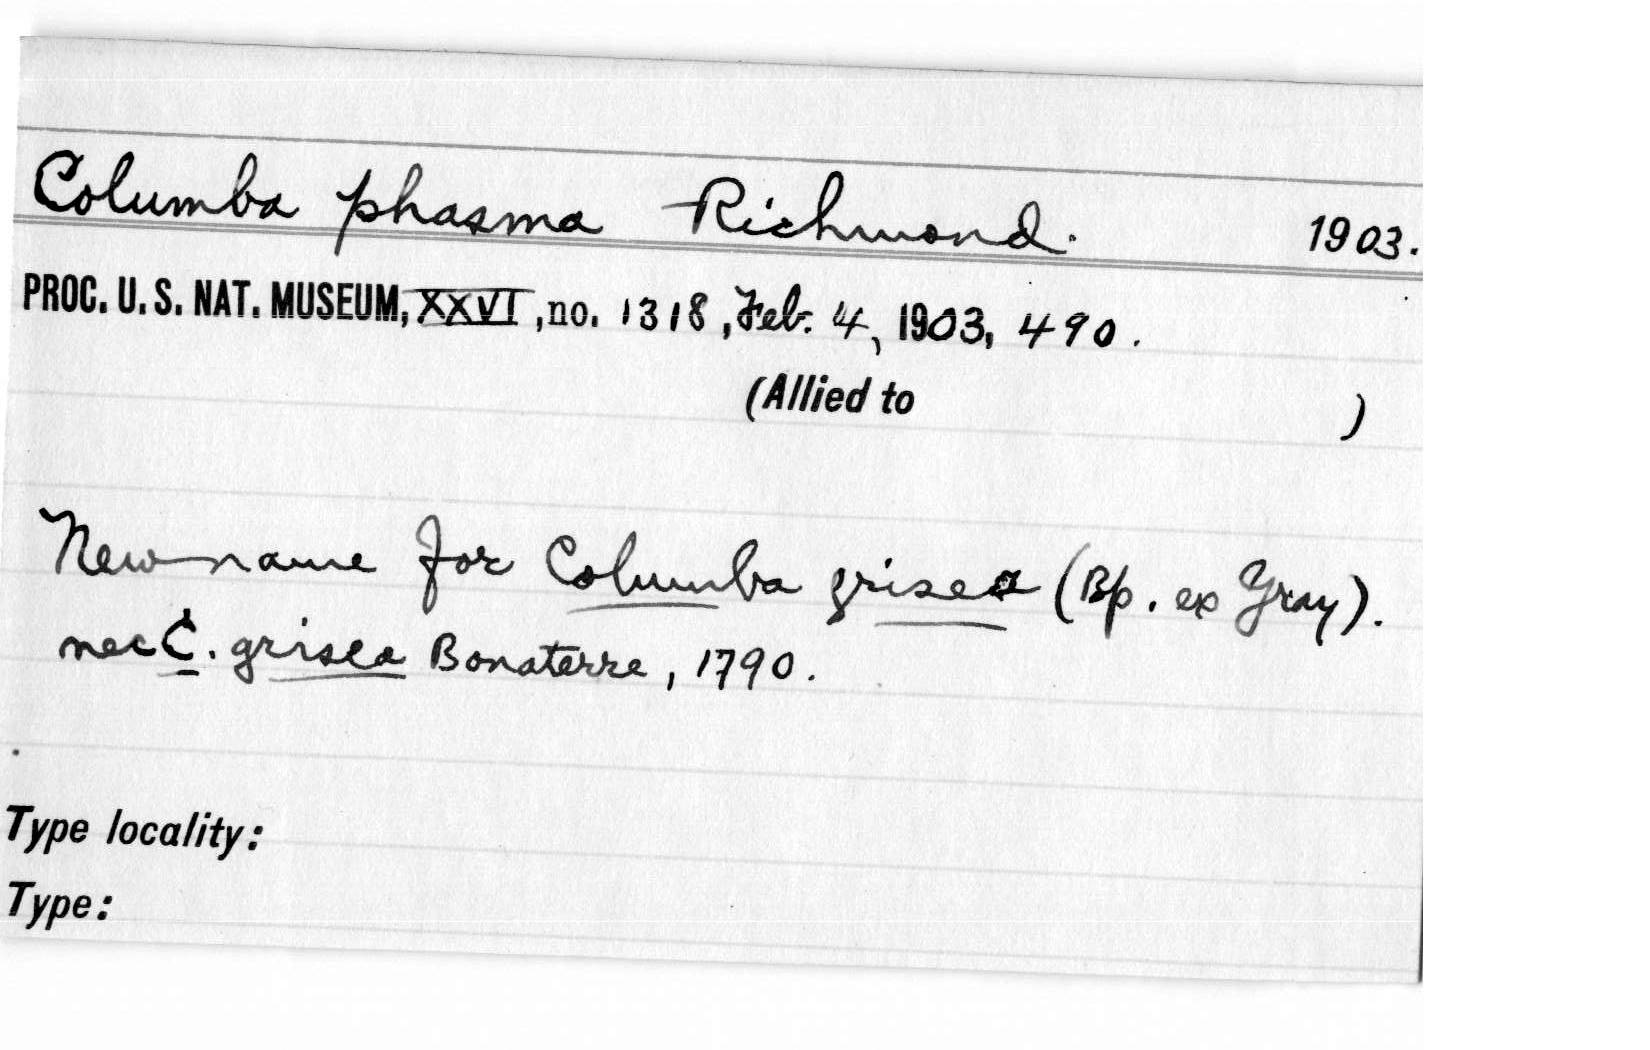 Columba phasma Richmond. 1903.
PROC. U. S. NAT. MUSEUM, XXVI, no. 1318, Feb. 4, 1903, 490.
(Allied to )
New name for Columba grisea (Bp. ex Gray).
nec C. grisea Bonaterre, 1790.
Type locality:
Type: